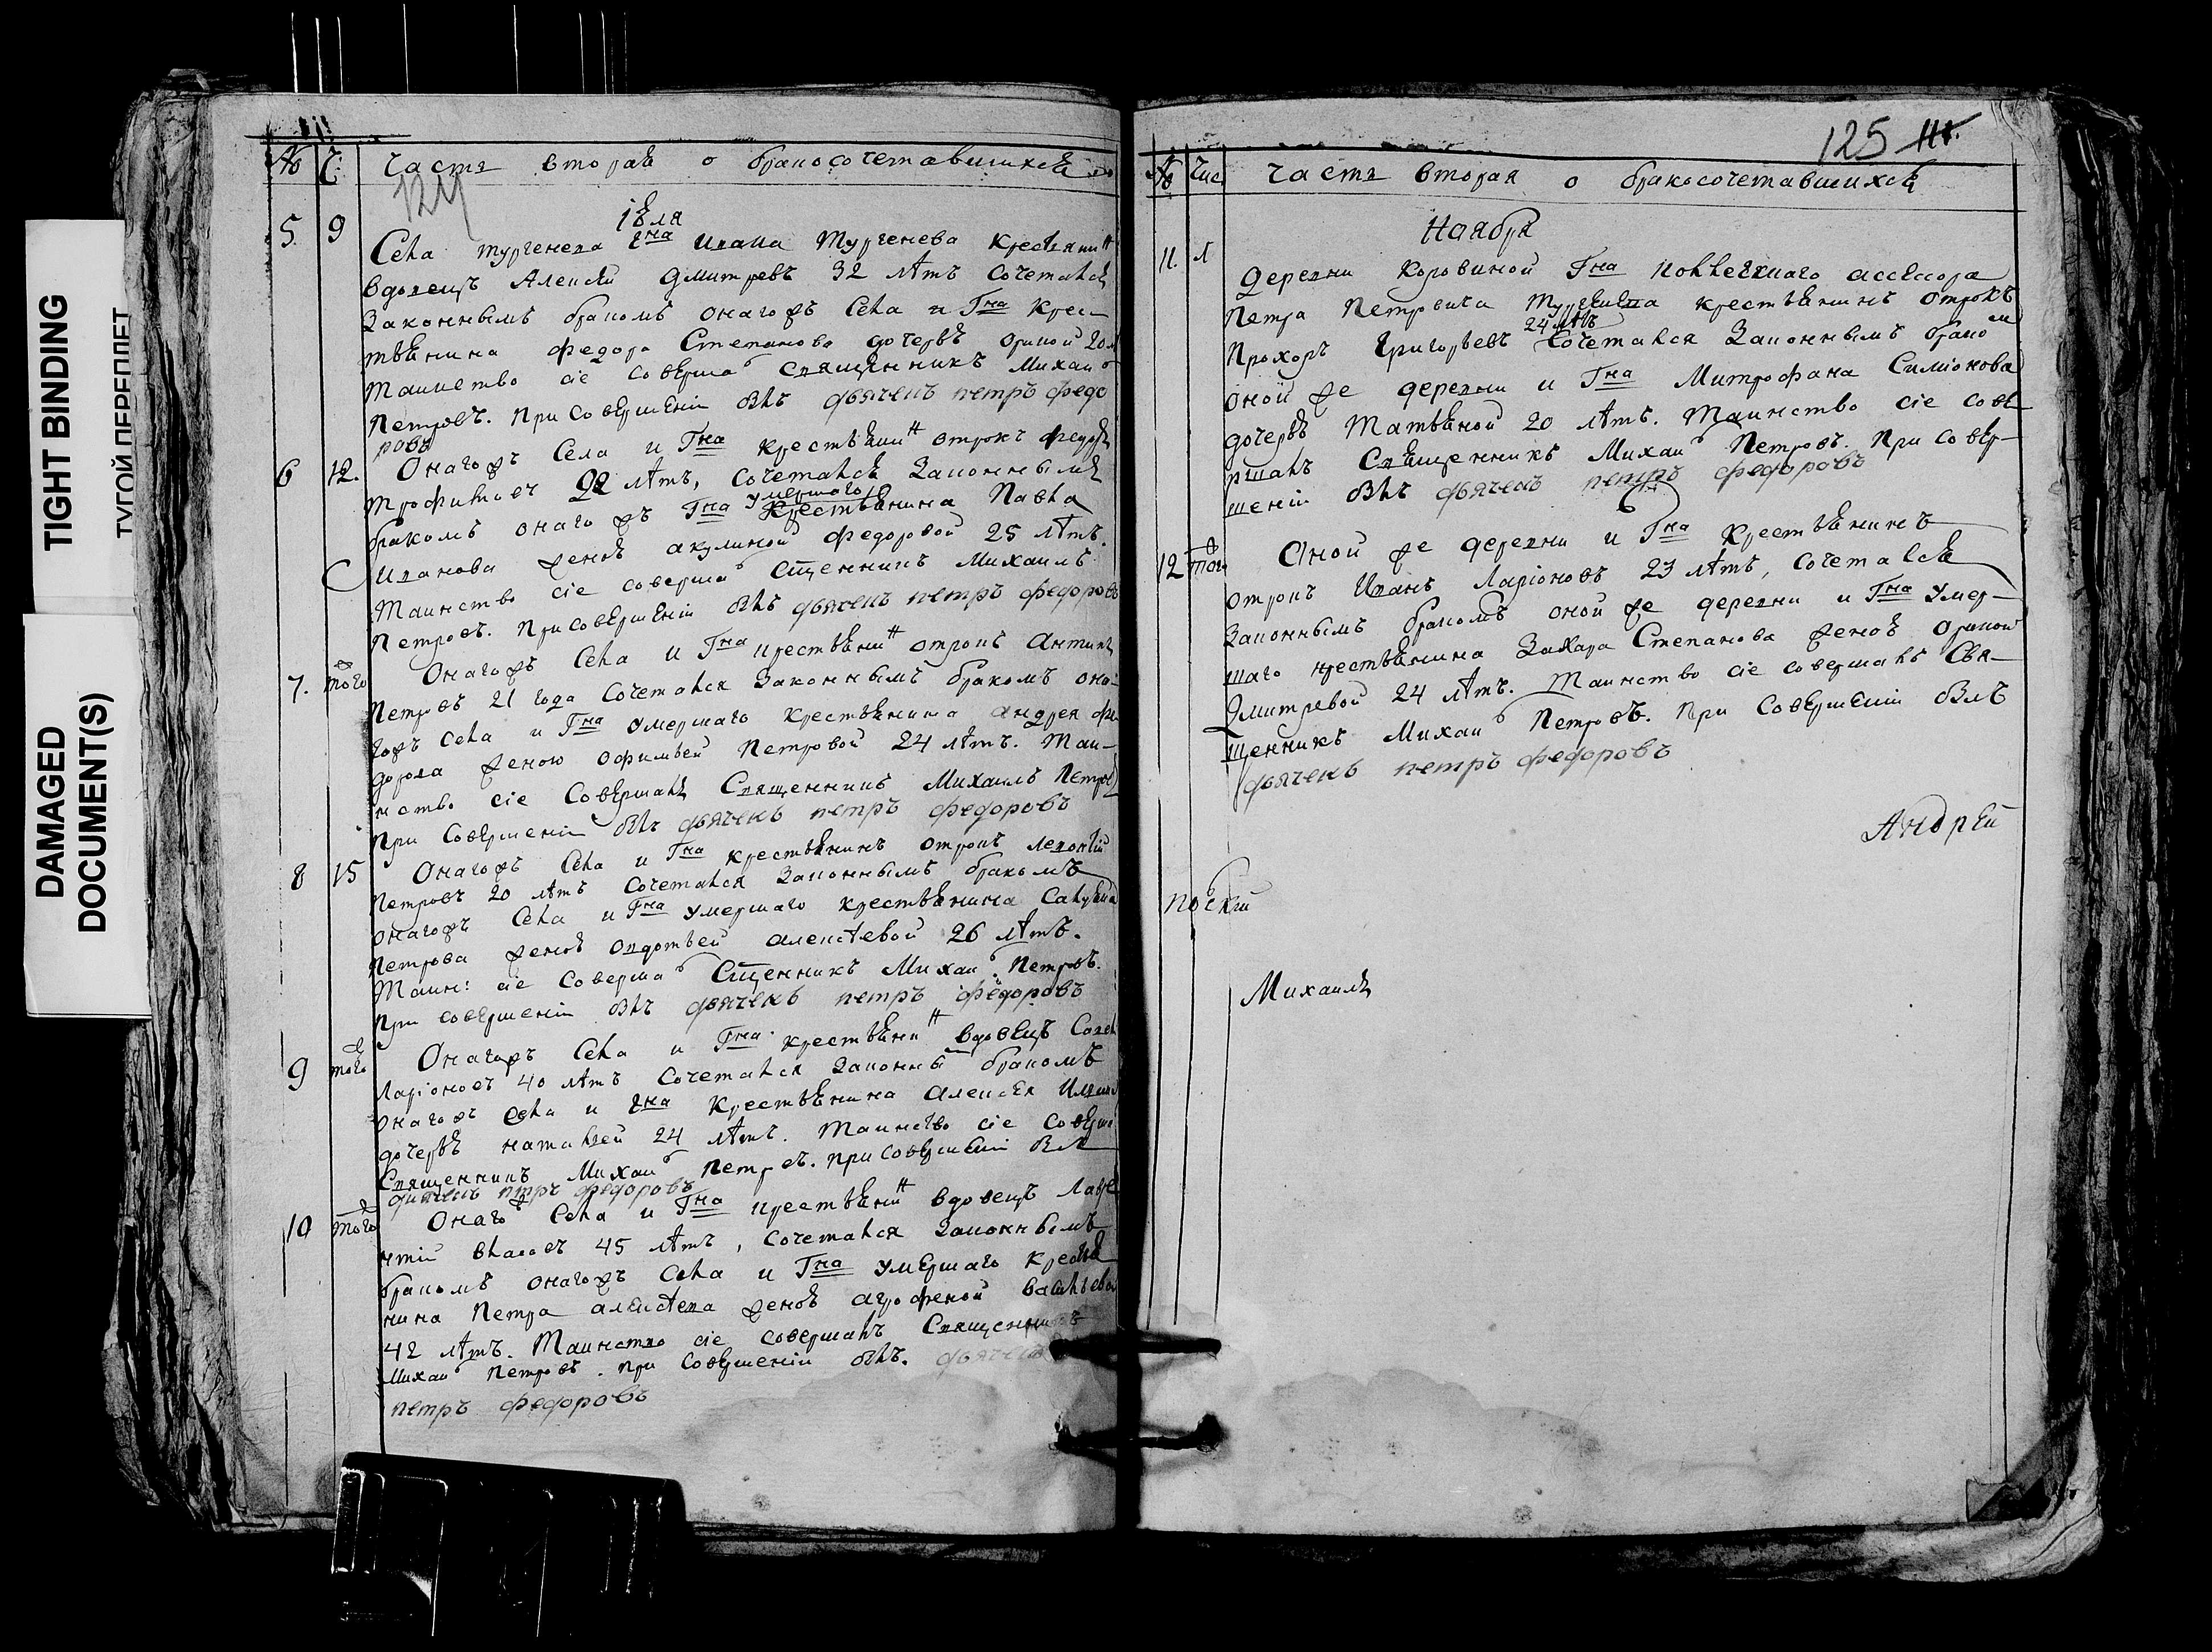 TIGHT BINDING
ТУГОЙ ПЕРЕПЛЕТ
DAMAGED
DOCUMENT(S)
№ Ч: Часть вторая о бракосочетавшихся
124
іюля
5. 9 Села Тургенева Гна Ивана Тургенева крестьянинъ
вдовецъ Алексѣй Дмитревъ 32 лѣтъ сочетался
законнымъ бракомъ онагожъ села и Гна крес-
тьянина Федора Степанова дочерью Ориной 20
Таинство сіе совершалъ священникъ Михаилъ
Петровъ. При совершеніи былъ дьячекъ петръ федо
ровъ
6 12. Онагожъ Села и Гна крестьянинъ отрокъ
Трофимовъ 22 лѣтъ, сочетался законнымъ
умершаго
бракомъ онагожъ Гна крестьянина Павла
Иванова женой акулиной федоровой 25 лѣтъ.
Таинство сіе совершалъ Сщенникъ Михаилъ
Петровъ. При совершеніи былъ дьячекъ петръ федоровъ
7. того Онагожъ Села и Гна крестьянинъ отрокъ Антипъ
Петровъ 21 года сочетался законнымъ бракомъ она-
гожъ села и Гна умершаго крестьянина андрея фе
дорова женою офимьей Петровой 24 лѣтъ. Таи-
нство сіе совершалъ Священникъ Михаилъ Петровъ
при совершеніи былъ дьячекъ петръ федоровъ
8 15 Онагожъ Села и Гна крестьянинъ отрокъ Леонтій
Петровъ 20 лѣтъ сочетался законнымъ бракомъ
онагожъ Села и Гна умершаго крестьянина
Петрова женой овдотьей алексѣевой 26 лѣтъ.
Таин: сіе совершалъ Сщенникъ Михаилъ Петровъ.
при совершеніи былъ дьячекъ петръ федоровъ
9 того Онагожъ Села и Гна крестьянинъ вдовецъ
Ларіоновъ 40 лѣтъ сочетался законны бракомъ
онагожъ села и Гна крестьянина Алексѣя
дочерью натальей 24 лѣтъ. Таинство сіе соверша
Священникъ Михаилъ Петровъ. при совершеніи былъ
дьячекъ петръ федоровъ
10 того Онаго Села и Гна крестьянинъ вдовецъ Лавре
нтій власовъ 45 лѣтъ, сочетался законнымъ
бракомъ онагожъ Села и Гна умершаго крестья
нина Петра алексѣева женой агрофеной васильевой
42 лѣтъ. Таинство сіе совершалъ Священникъ
Михаилъ Петровъ. при совершеніи былъ. дьячекъ
петръ федоровъ
125
№ Чис. Часть вторая о бракосочетавшихся
Ноября
11. Деревни Коровиной Гна Коллежнаго ассесора
Петра Петровича Тургенева крестьянинъ отрокъ
24 лѣтъ
Прохоръ Григорьевъ сочетался законнымъ бракомъ
оной же деревни и Гна Митрофана Симіонова
дочерью Татьяной 20 лѣтъ. Таинство сіе сове
ршалъ Священникъ Михаилъ Петровъ. При совер-
шеніи былъ дьячекъ петръ федоровъ
12 того Оной же деревни и Гна крестьянинъ
отрокъ Иванъ Ларіоновъ 23 лѣтъ, сочетался
законнымъ бракомъ оной же деревни и Гна умер-
шаго крестьянина Захара Степанова женой Ориной
Дмитревой 24 лѣтъ. Таинство сіе совершалъ Свя-
щенникъ Михаилъ Петровъ. При совершеніи былъ
дьячекъ петръ федоровъ
Андрей
Михаилъ